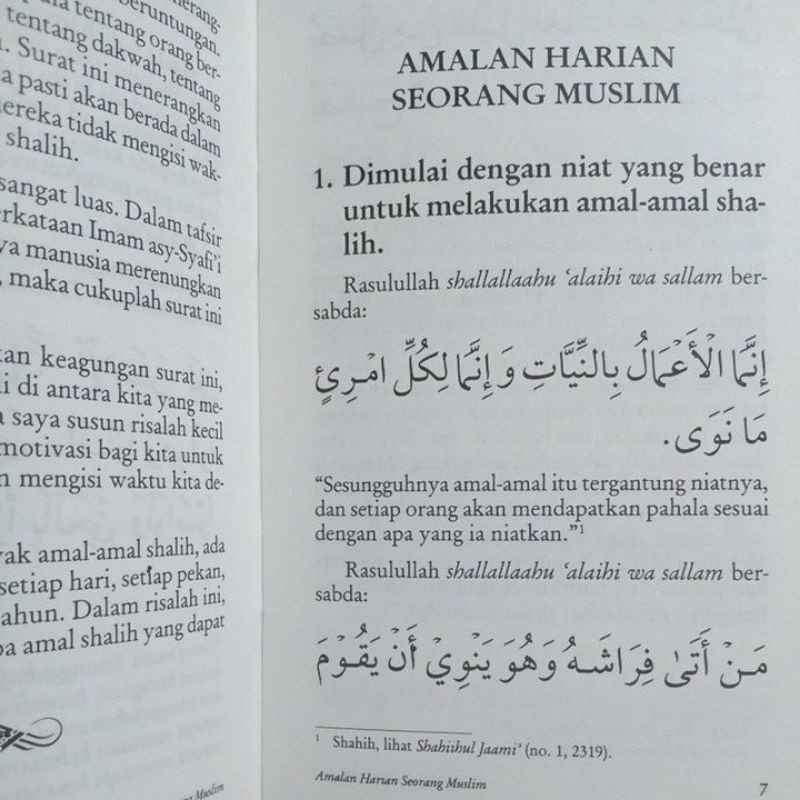 tentang orang ber-
beruntungan.
tentang dakwah, tentang
Surat ini menerangkan
a pasti akan berada dalam
mereka tidak mengisi wak-
shalih.
sangat luas. Dalam tafsir
erkataan Imam asy-Syafi'i
ya manusia merenungkan
, maka cukuplah surat ini
kan keagungan surat ini,
i di antara kita yang me-
a saya susun risalah kecil
motivasi bagi kita untuk
n mengisi waktu kita de-
yak amal-amal shalih, ada
setiap hari, setiap pekan,
ahun. Dalam risalah ini,
pa amal shalih yang dapat
ng Muslim
AMALAN HARIAN
SEORANG MUSLIM
1. Dimulai dengan niat yang benar
untuk melakukan amal-amal sha-
lih.
Rasulullah shallallaahu ‘alaihi wa sallam ber-
sabda:
إِنَّمَا الْأَعْمَالُ بِالنِّيَّاتِ وَإِنَّمَا لِكُلِّ امْرِئٍ
مَا نَوَى.
“Sesungguhnya amal-amal itu tergantung niatnya,
dan setiap orang akan mendapatkan pahala sesuai
dengan apa yang ia niatkan.”¹
Rasulullah shallallaahu ‘alaihi wa sallam ber-
sabda:
مَنْ أَتَى فِرَاشَهُ وَهُوَ يَنْوِيْ أَنْ يَقُوْمَ
¹ Shahih, lihat Shahiihul Jaami’ (no. 1, 2319).
Amalan Harian Seorang Muslim
7